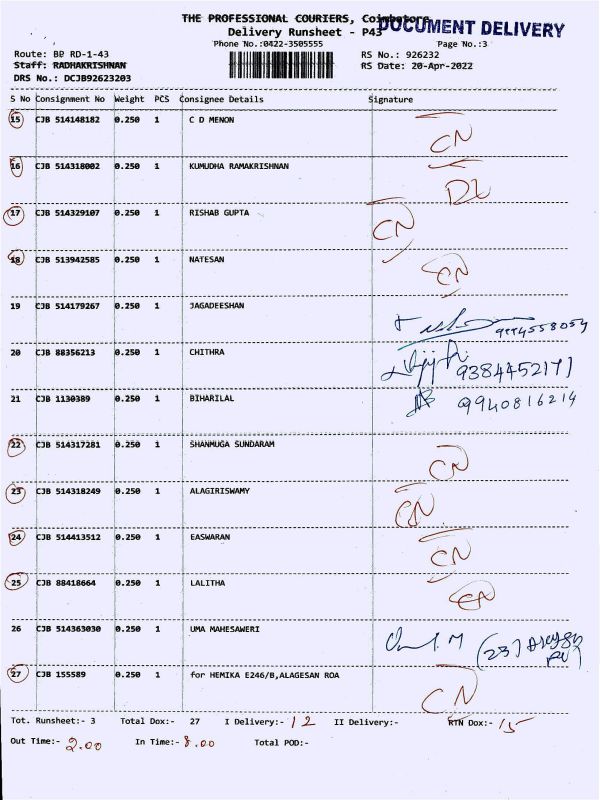 THE PROFESSIONAL COURIERS, Coimbatore
DOCUMENT DELIVERY
Delivery Runsheet - P43
Phone No.:0422-3505555
Page No.:3
Route: BP RD-1-43
RS No.: 926232
Staff: RADHAKRISHNAN
RS Date: 20-Apr-2022
DRS No.: DCJB92623203
S No Consignment No Weight PCS Consignee Details Signature
15 CJB 514148182 0.250 1 C D MENON CN
16 CJB 514318002 0.250 1 KUMUDHA RAMAKRISHNAN DL
17 CJB 514329107 0.250 1 RISHAB GUPTA CN
18 CJB 513942585 0.250 1 NATESAN CN
19 CJB 514179267 0.250 1 JAGADEESHAN
20 CJB 88356213 0.250 1 CHITHRA 9384452171
21 CJB 1130389 0.250 1 BIHARILAL 9940816214
22 CJB 514317281 0.250 1 SHANMUGA SUNDARAM CN
23 CJB 514318249 0.250 1 ALAGIRISWAMY CN
24 CJB 514413512 0.250 1 EASWARAN CN
25 CJB 88418664 0.250 1 LALITHA CN
26 CJB 514363030 0.250 1 UMA MAHESAWERI
27 CJB 155589 0.250 1 for HEMIKA E246/B,ALAGESAN ROA CN
Tot. Runsheet:- 3 Total Dox:- 27 I Delivery:- 12 II Delivery:- RTN Dox:- 15
Out Time:- 2.00 In Time:- 8.00 Total POD:-